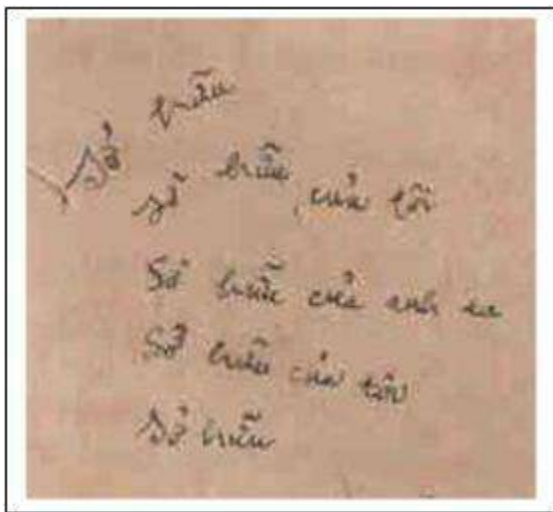 Sở hữu
sở hữu của tôi
Sở hữu của anh ta
Sở hữu của tôi
Sở hữu